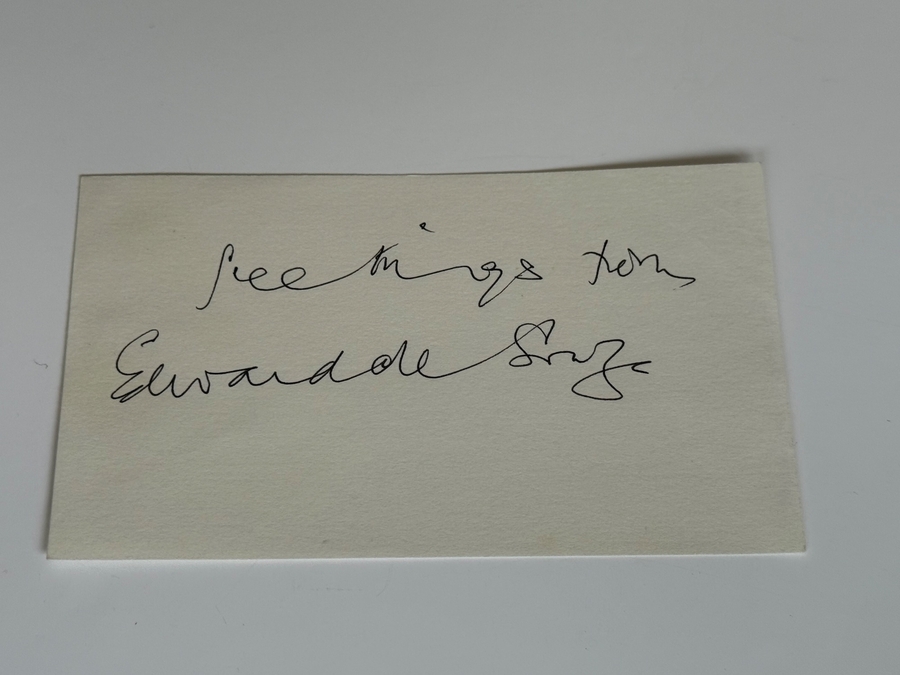 Greetings from
Edward de Souza